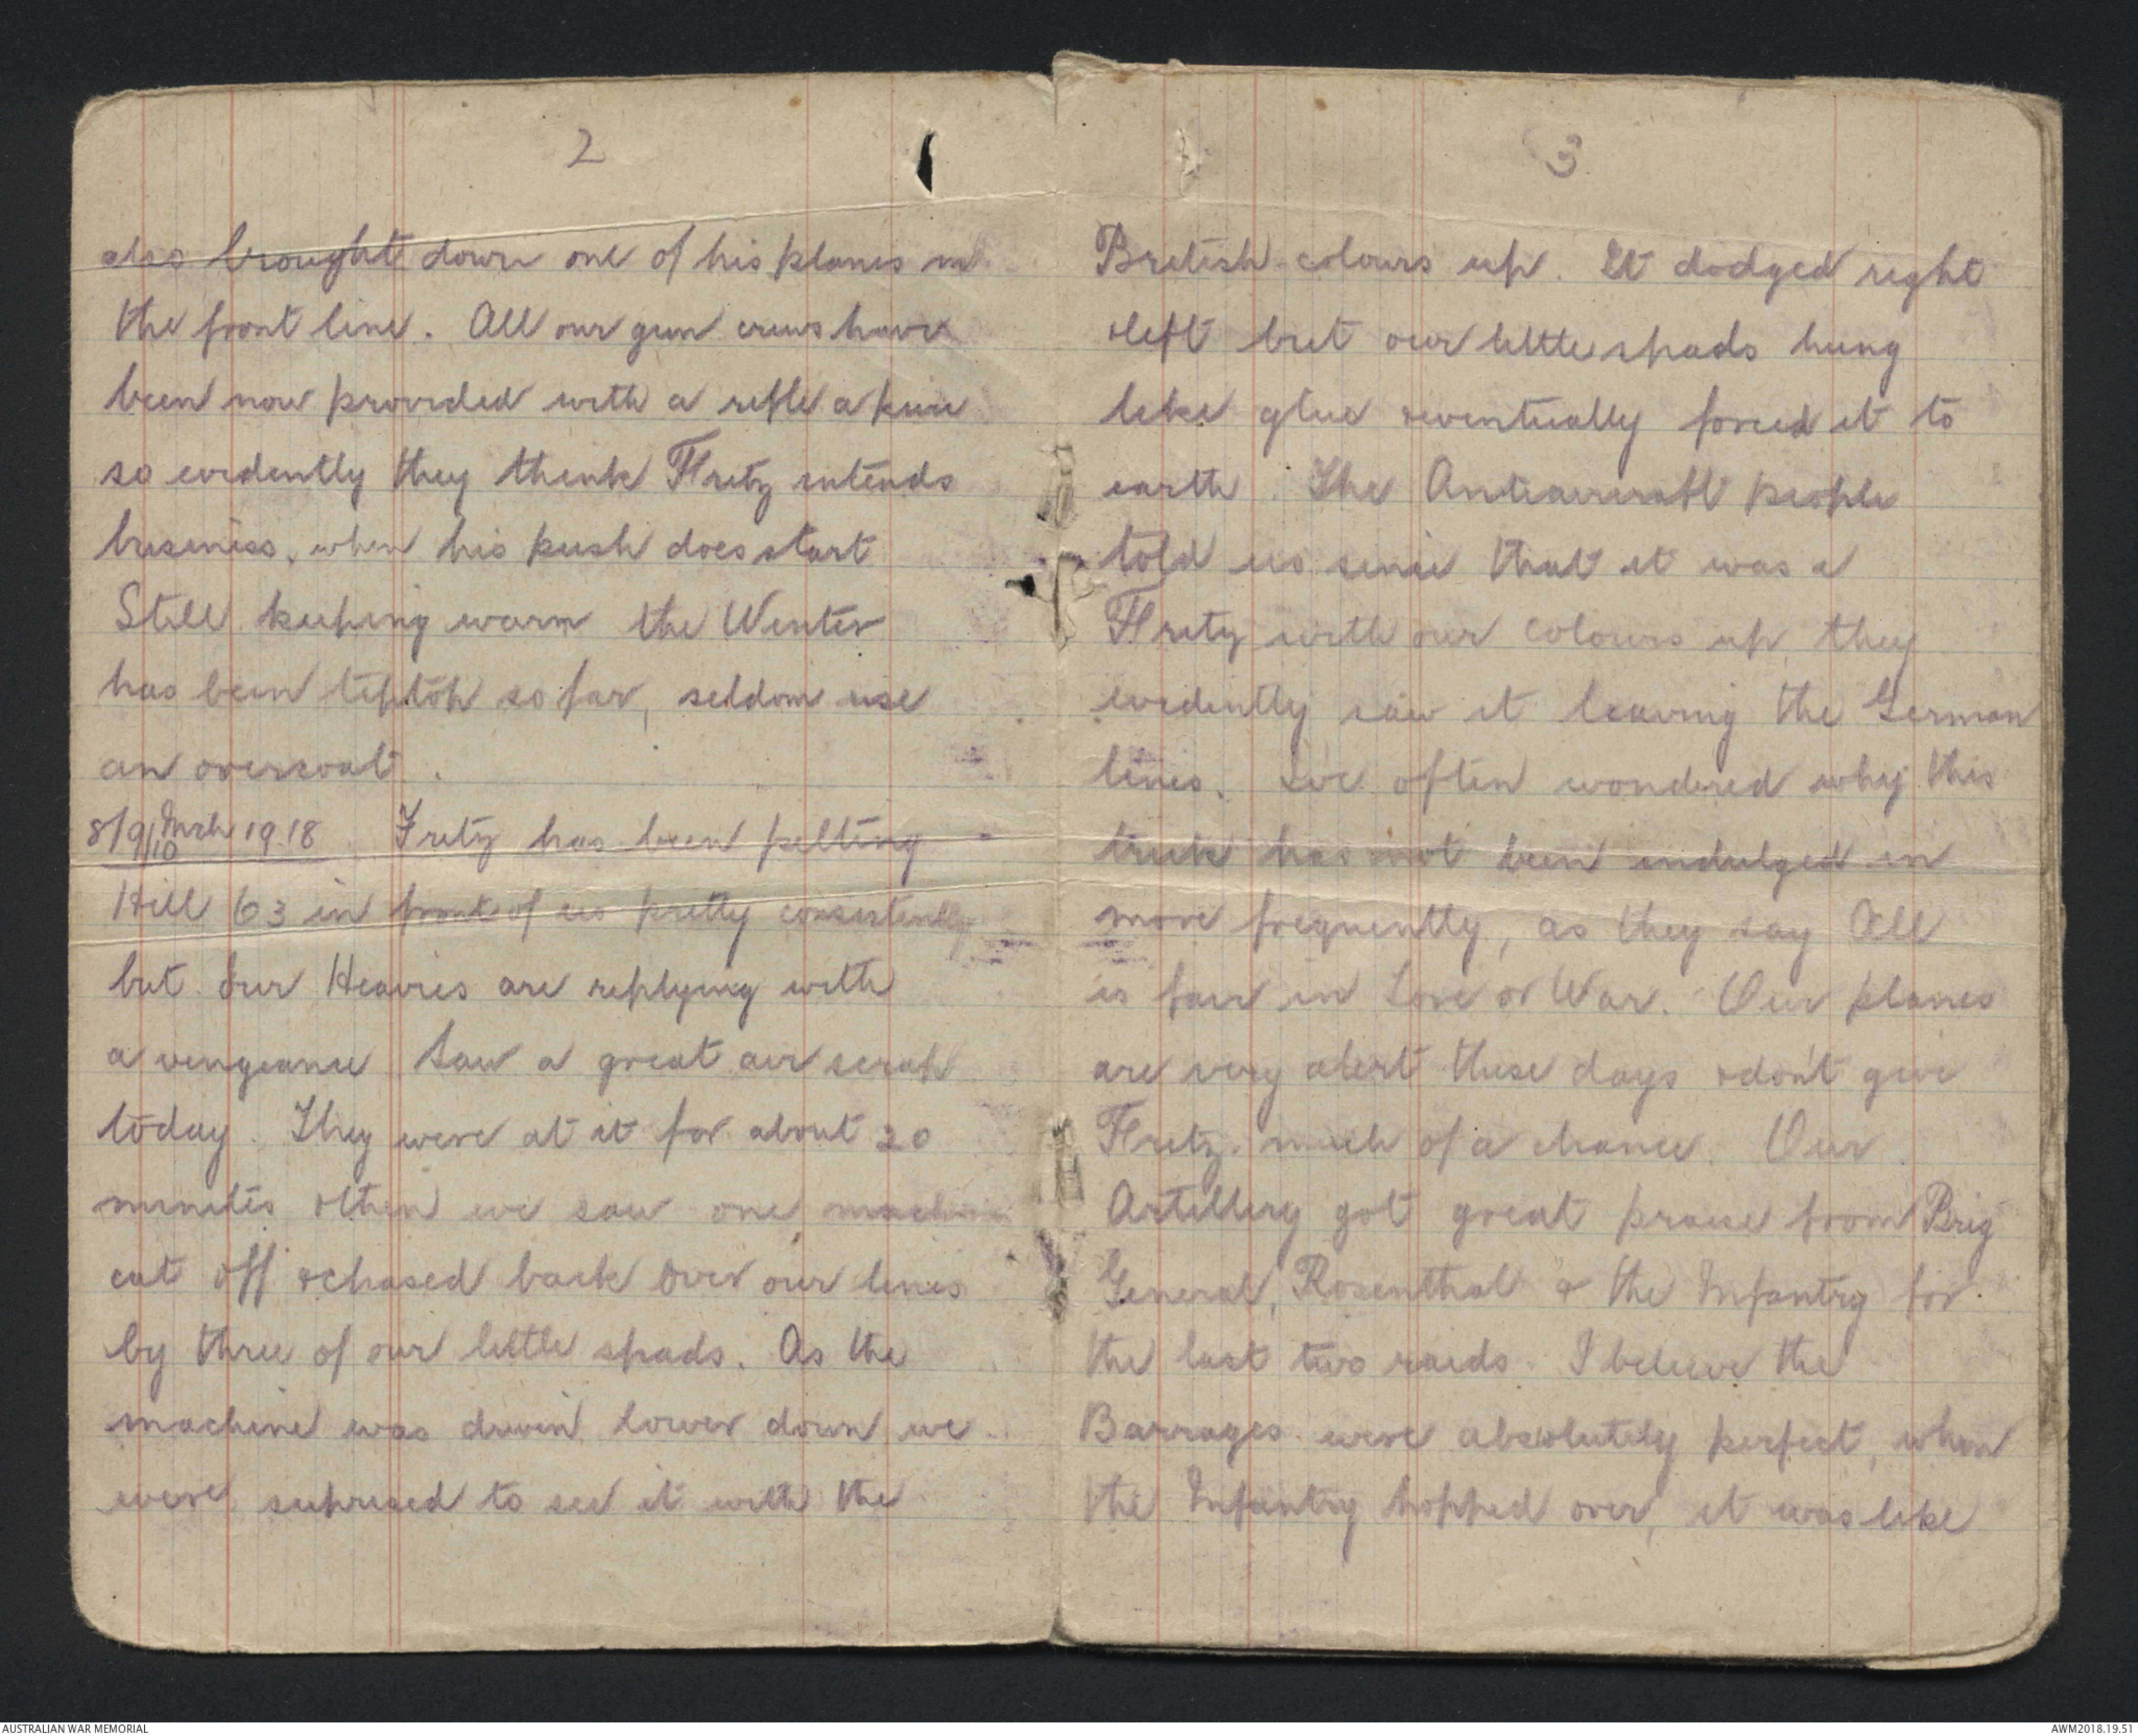 2
also brought down one of his planes in
the front line. All our gun crews have
been now provided with a rifle apiece
so evidently they think Fritz intends
business, when his push does start
Still keeping warm the Winter
has been tiptop so far, seldom use
an overcoat.
8/9/10 Mch 1918. Fritz has been pelting
Hill 63 in front of us pretty consistently
but our Heavies are replying with
a vengeance Saw a great air scrap
today. They were at it for about 20
minutes & then we saw one machine
cut off & chased back over our lines
by three of our little spads. As the
machine was driven lower down we
were suprised to see it with the
3
British colours up. It dodged right
& left but our little spads hung
like glue & eventually forced it to
earth. The Antiaircraft people
told us since that it was a
Fritz with our colours up, they
evidently saw it leaving the German
lines. Ive often wondered why this
trick has not been indulged in
more frequently, as they say All
is fair in Love or War. Our planes
are very alert these days & don't give
Fritz much of a chance. Our
Artillery got great praise from Brig
General, Rosenthal & the Infantry for
the last two raids. I believe the
Barrages were absolutely perfect, when
the Infantry hopped over, it was like
AUSTRALIAN WAR MEMORIAL
AWM2018.19.51